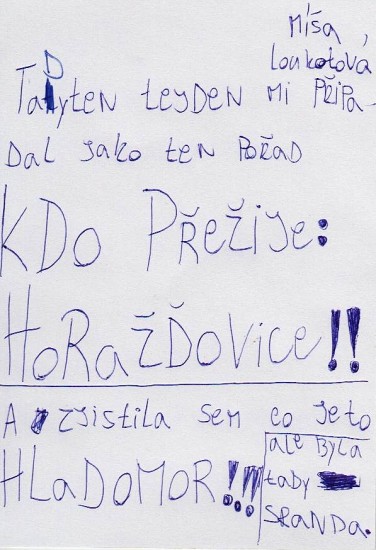 Míša,
Loukotová
Tadyten teyden mi PřiPa-
Dal jako ten PoŘaD
KDo PřežiJe:
HoRažĎovice!!
A zjistila sem co jeto
HLaDOMOR!!!
ale ByLa
taby
SRanDa.